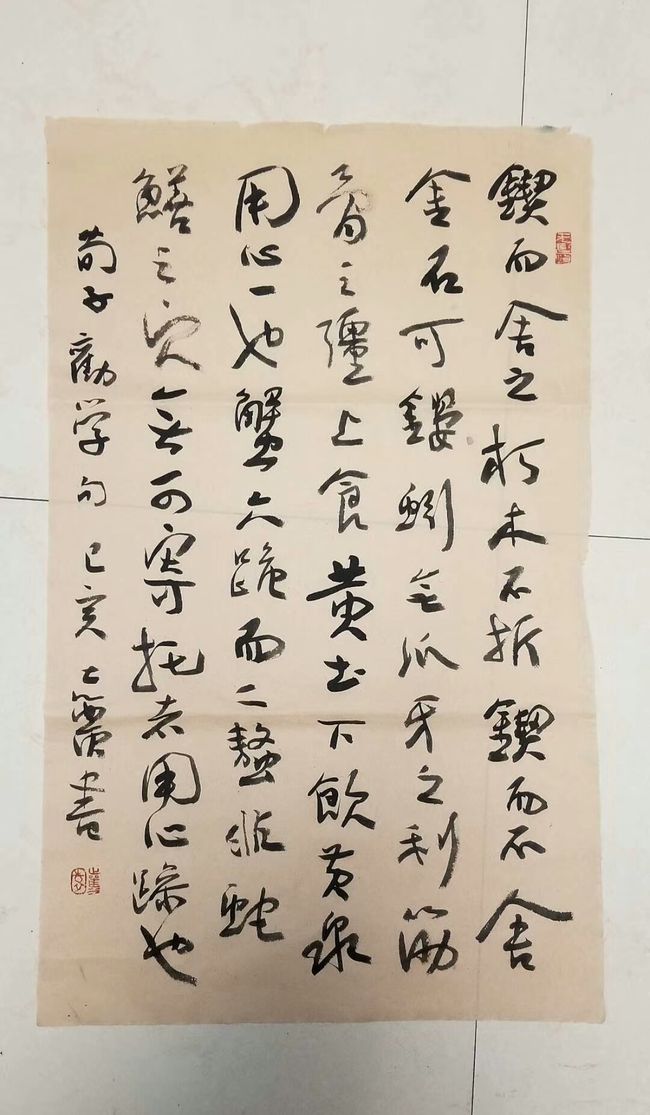 鍥而舍之朽木不折鍥而不舍
金石可鏤蚓無爪牙之利筋
骨之彊上食黄土下飲黄泉
用心一也蟹六跪而二螯非蛇
鱔之穴無可寄托者用心躁也
荀子勸学句己亥書